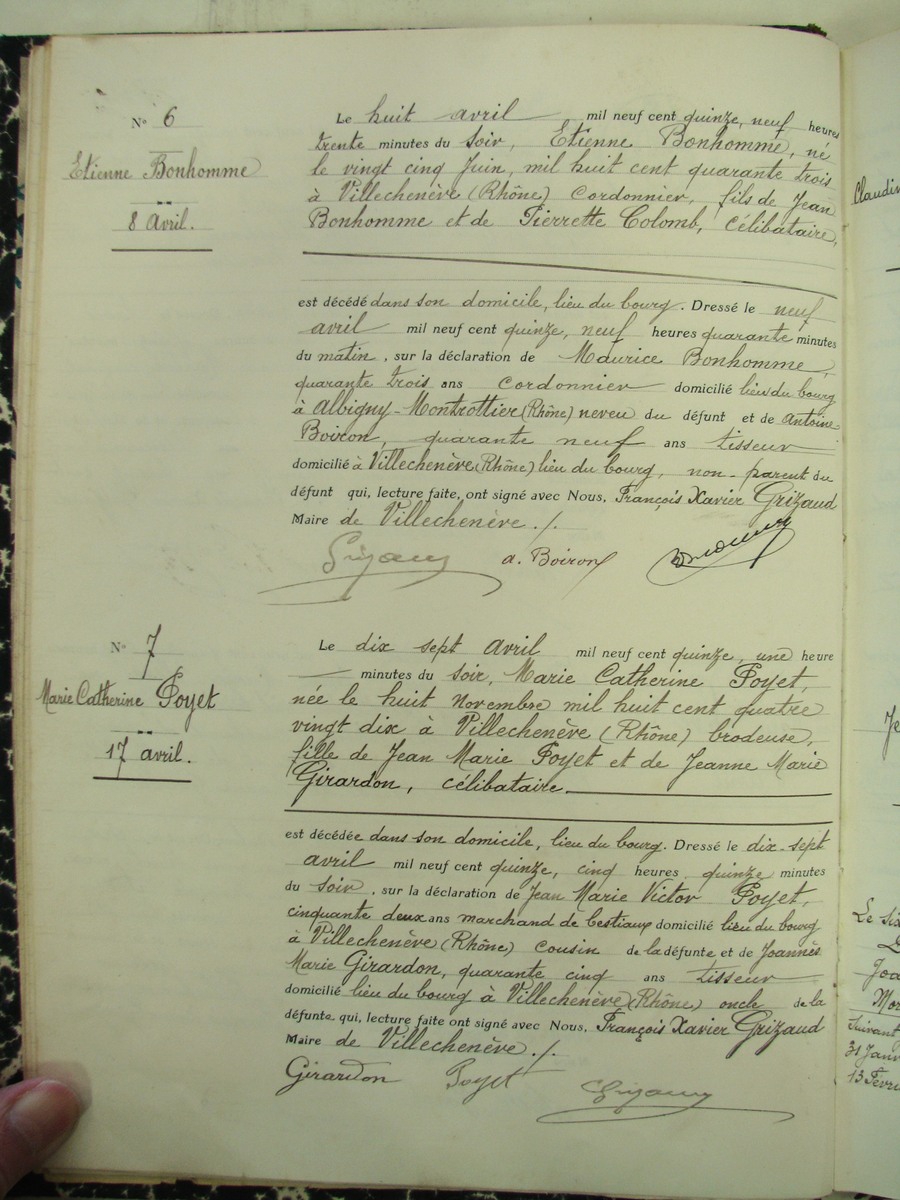 N° 6
Etienne Bonhomme
8 Avril.
Le huit avril mil neuf cent quinze, neuf heures
trente minutes du soir, Etienne Bonhomme, né
le vingt cinq Juin, mil huit cent quarante trois
à Villechenève (Rhône) cordonnier, fils de Jean
Bonhomme et de Pierrette Colomb, célibataire,
est décédé dans son domicile, lieu du bourg. Dressé le neuf
avril mil neuf cent quinze, neuf heures quarante minutes
du matin, sur la déclaration de Maurice Bonhomme,
quarante trois ans cordonnier domicilié lieu du bourg
à Albigny-Montrottier (Rhône) neveu du défunt et de Antoine
Boiron, quarante neuf ans tisseur
domicilié à Villechenève (Rhône) lieu du bourg, non-parent du
défunt qui, lecture faite, ont signé avec Nous, François Xavier Grizaud
Maire de Villechenève ./.
Grizaud a. Boiron
N° 7
Marie Catherine Poyet
17 avril.
Le dix sept avril mil neuf cent quinze, une heure
minutes du soir, Marie Catherine Poyet,
née le huit Novembre mil huit cent quatre
vingt dix à Villechenève (Rhône) brodeuse,
fille de Jean Marie Poyet et de Jeanne Marie
Girardon, célibataire.
est décédée dans son domicile, lieu du bourg. Dressé le dix-sept
avril mil neuf cent quinze, cinq heures quinze minutes
du soir, sur la déclaration de Jean Marie Victor Poyet,
cinquante deux ans marchand de bestiaux domicilié lieu du bourg
à Villechenève (Rhône) cousin de la défunte et de Joannès
Marie Girardon, quarante cinq ans tisseur
domicilié lieu du bourg à Villechenève (Rhône) oncle de la
défunte qui, lecture faite ont signé avec Nous, François Xavier Grizaud
Maire de Villechenève ./.
Girardon Poyet Grizaud
Claudin
Le six
Joa
Mor
Suivant
31 Janv
13 Févri